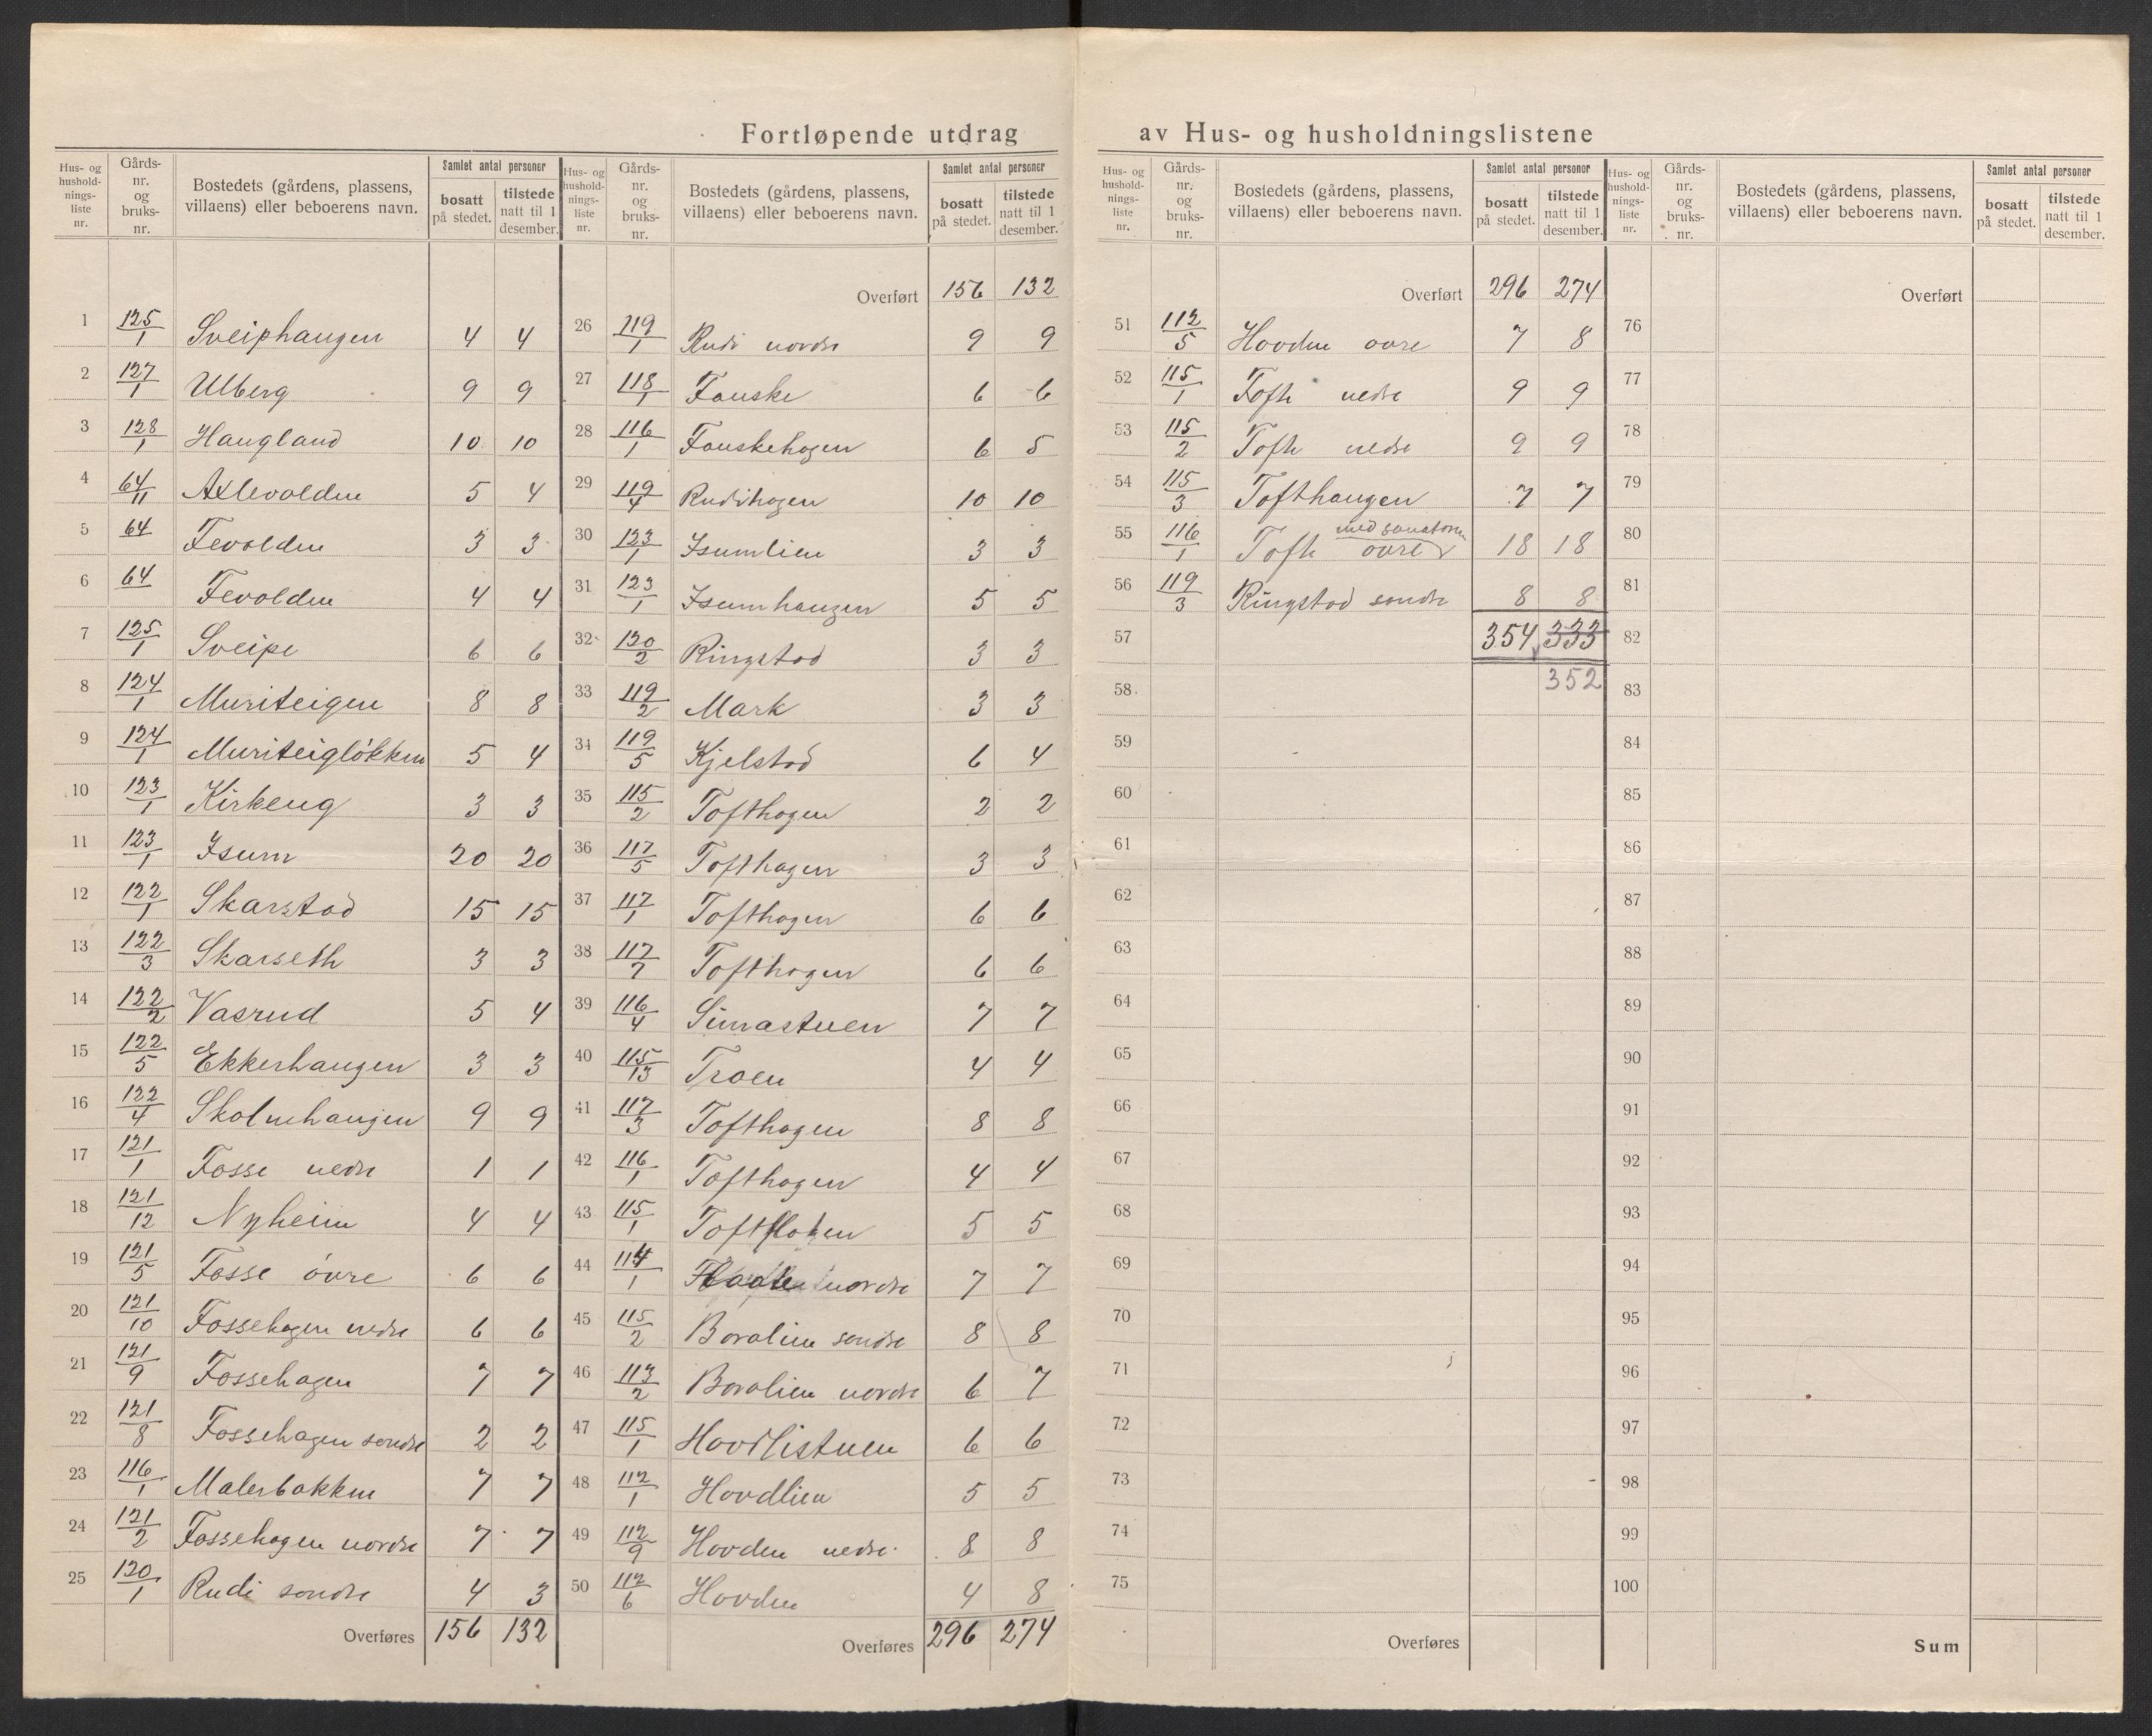 Fortløpende utdrag av Hus- og husholdningslistene
Hus- og husholdningsliste nr. Gårdsnr. og bruksnr. Bostedets (gårdens, plassens, villaens) eller beboerens navn. Samlet antal personer bosatt på stedet. tilstede natt til 1 desember.
1 125/1 Sveiphaugen 4 4
2 127/1 Ulberg 9 9
3 128/1 Haugland 10 10
4 64/11 Axlevolden 5 4
5 64 Fevolden 3 3
6 64 Fevolden 4 4
7 125/1 Sveipe 6 6
8 124/1 Muriteigen 8 8
9 124/1 Muriteigløkken 5 4
10 123/1 Kirkeng 3 3
11 123/1 Isum 20 20
12 122/1 Skarstad 15 15
13 122/3 Skarseth 3 3
14 122/2 Vasrud 5 4
15 122/5 Ekkerhaugen 3 3
16 122/4 Skolmhaugen 9 9
17 121/1 Fosse nedre 1 1
18 121/12 Nyheim 4 4
19 121/5 Fosse övre 6 6
20 121/10 Fossehagen nedre 6 6
21 121/9 Fossehagen 7 7
22 121/8 Fossehagen söndre 2 2
23 116/1 Malerbakken 7 7
24 121/2 Fossehagen nordre 7 7
25 120/1 Rudi söndre 4 3
Overføres 156 132
Hus- og husholdningsliste nr. Gårdsnr. og bruksnr. Bostedets (gårdens, plassens, villaens) eller beboerens navn. Samlet antal personer bosatt på stedet. tilstede natt til 1 desember.
Overført 156 132
26 119/1 Rudi nordre 9 9
27 118/1 Fauske 6 6
28 116/1 Fauskehagen 6 5
29 119/4 Rudihagen 10 10
30 123/1 Isumlien 3 3
31 123/1 Isumhaugen 5 5
32 120/2 Ringstad 3 3
33 119/2 Mark 3 3
34 119/5 Kjelstad 6 4
35 115/2 Tofthagen 2 2
36 117/5 Tofthagen 3 3
37 117/1 Tofthagen 6 6
38 117/7 Tofthagen 6 6
39 116/4 Simastuen 7 7
40 115/13 Troen 4 4
41 117/3 Tofthagen 8 8
42 116/1 Tofthagen 4 4
43 115/1 5 5
44 114/1 nordre 7 7
45 115/2 Boralien söndre 8 8
46 113/2 Boralien nordre 6 7
47 115/1 Hovdlistuen 6 6
48 112/1 Hovdlien 5 5
49 112/9 Hovden nedre 8 8
50 112/6 Hovden 4 8
Overføres 296 274
Hus- og husholdningsliste nr. Gårdsnr. og bruksnr. Bostedets (gårdens, plassens, villaens) eller beboerens navn. Samlet antal personer bosatt på stedet. tilstede natt til 1 desember.
Overført 296 274
51 112/5 Hovden övre 7 8
52 115/1 Tofte nedre 9 9
53 115/2 Tofte nedre 9 9
54 115/3 Tofthaugen 7 7
55 116/1 Tofte övre 18 18
56 119/3 Ringstad söndre 8 8
57 354 333
58 352
59
60
61
62
63
64
65
66
67
68
69
70
71
72
73
74
75
Overføres
Hus- og husholdningsliste nr. Gårdsnr. og bruksnr. Bostedets (gårdens, plassens, villaens) eller beboerens navn. Samlet antal personer bosatt på stedet. tilstede natt til 1 desember.
Overført
76
77
78
79
80
81
82
83
84
85
86
87
88
89
90
91
92
93
94
95
96
97
98
99
100
Sum